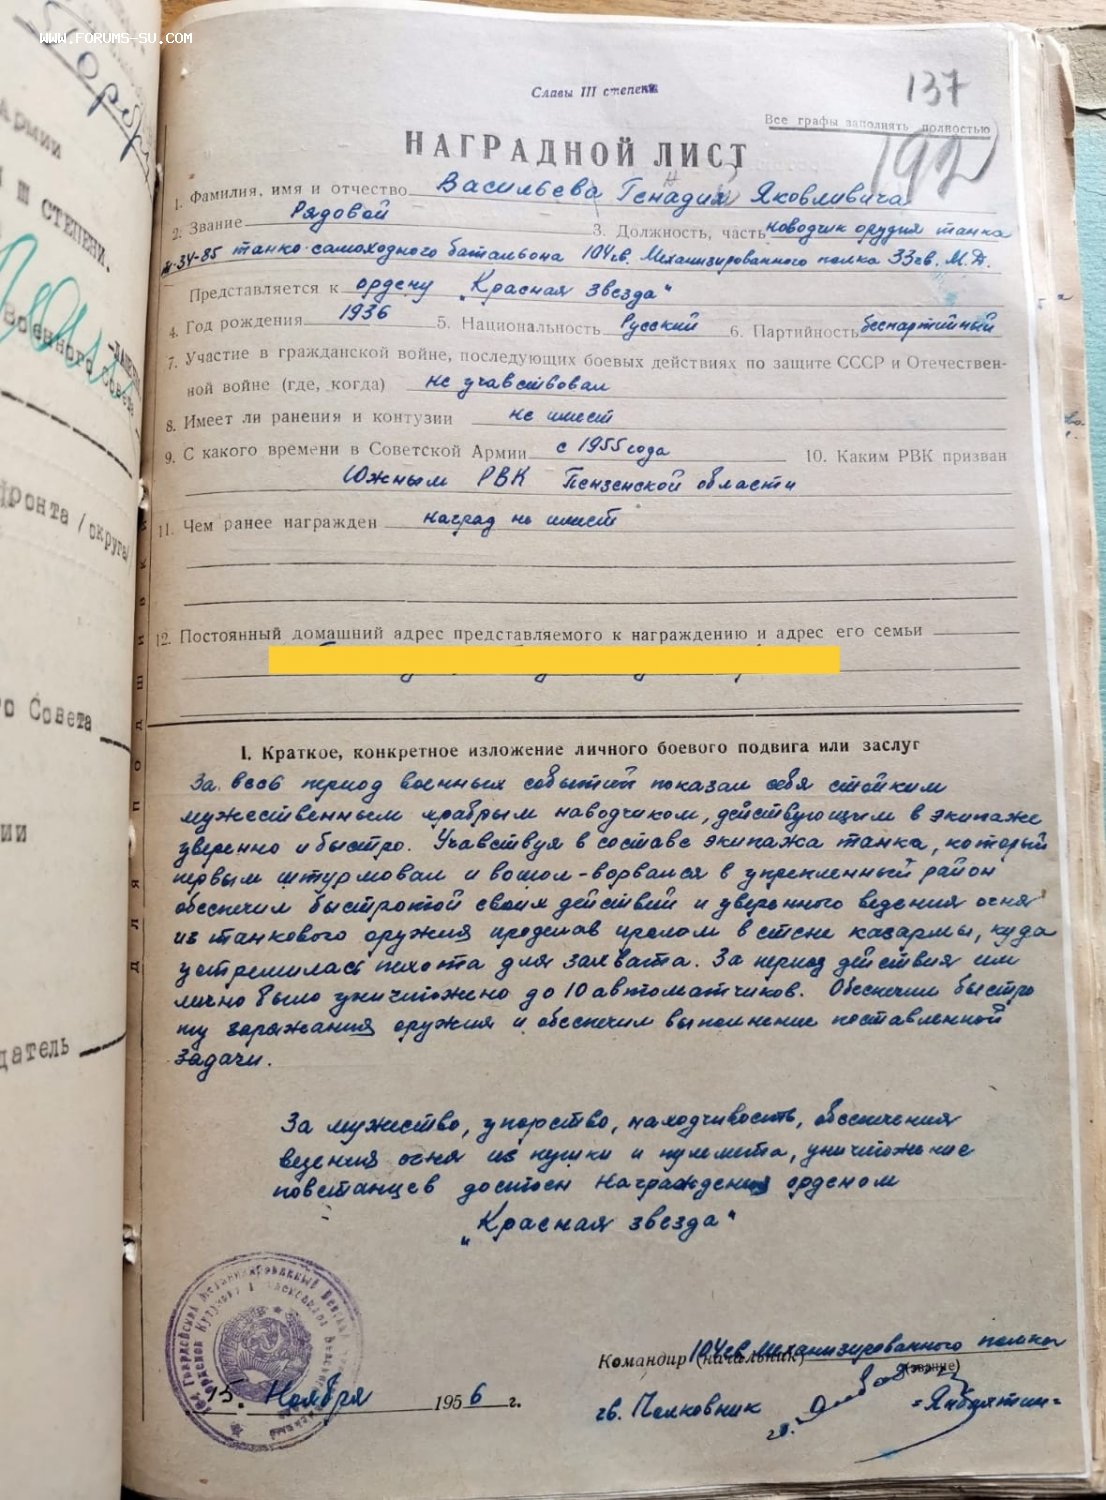 WWW.FORUMS-SU.COM
Славы III степени
137
Все графы заполнять полностью
192
НАГРАДНОЙ ЛИСТ
1. Фамилия, имя и отчество Васильева Генадия Яковливича
2. Звание Рядовой 3. Должность, часть наводчик орудия танка
Т-34-85 танко-самоходного батальона 104 гв. Механизированного полка 33 гв. М.Д.
Представляется к ордену „Красная Звезда"
4. Год рождения 1936 5. Национальность Русский 6. Партийность беспартийный
7. Участие в гражданской войне, последующих боевых действиях по защите СССР и Отечествен-
ной войне (где, когда) не учавствовал
8. Имеет ли ранения и контузии не имеет
9. С какого времени в Советской Армии с 1955 года 10. Каким РВК призван
Южным РВК Пензенской области
11. Чем ранее награжден наград не имеет
12. Постоянный домашний адрес представляемого к награждению и адрес его семьи
I. Краткое, конкретное изложение личного боевого подвига или заслуг
За весь период военных событий показал себя стойким
мужественным храбрым наводчиком, действующим в экипаже
уверенно и быстро. Учавствуя в составе экипажа танка, который
первым штурмовал и вошол-ворвался в укрепленный район
обеспечил быстротой своих действий и уверенного ведения огня
из танкового оружия проделав пролом в стене казармы, куда
устремилась пехота для захвата. За период действия им
лично было уничтожено до 10 автоматчиков. Обеспечил быстро
ту заряжания оружия и обеспечил выполнение поставленной
задачи.
За мужество, упорство, находчивость, обеспечения
ведения огня из пушки и пулемета, уничтожение
повстанцев достоен награждения орденом
„Красная звезда"
Командир (начальник) 104 гв Механизированного полка
(звание)
15. Ноября 1956 г.
гв. Полковник =Янбахтин=
для подшивки
Армии
III СТЕПЕНИ.
Военного Совета
фронта /округа/
Совета
ии
датель